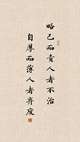 略己而責人者不治
自厚而薄人者棄廢